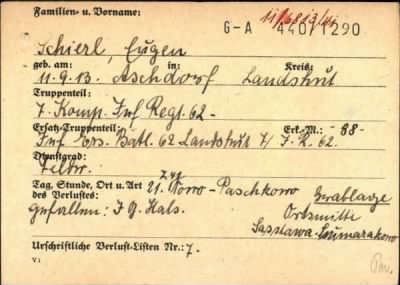 Familien- u. Vorname:
G-A 440/1290
Schierl, Eugen
geb. am: in: Kreis:
11.9.13. Aschdorf Landshut
Truppenteil:
7. Komp. Inf. Regt. 62 -
Ersatz-Truppenteil: Erk.-M.: - 88 -
Inf. Ers. Batl. 62 Landshut 7/ J.R. 62.
Dienstgrad:
Feldw.
Tag, Stunde, Ort u. Art 21. Nowo-Paschkowo
des Verlustes: Grablage
gefallen: I G. Hals. Ortsmitte
Sasslawa-
Urschriftliche Verlust-Listen Nr.: 7.
V1